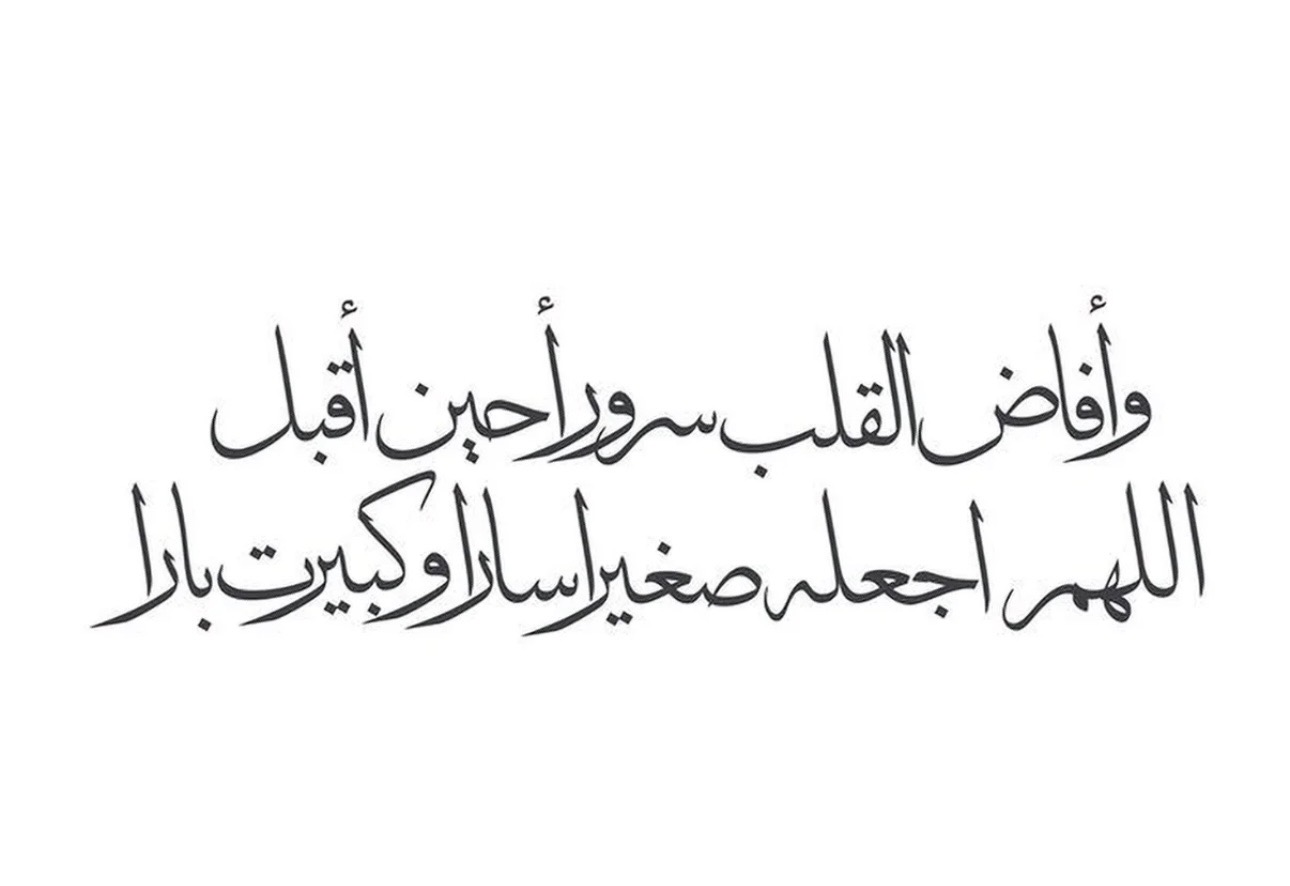 وأفاض القلب سرور أحين أقبل
اللهم اجعله صغيرا سارا وكبيرت بارا